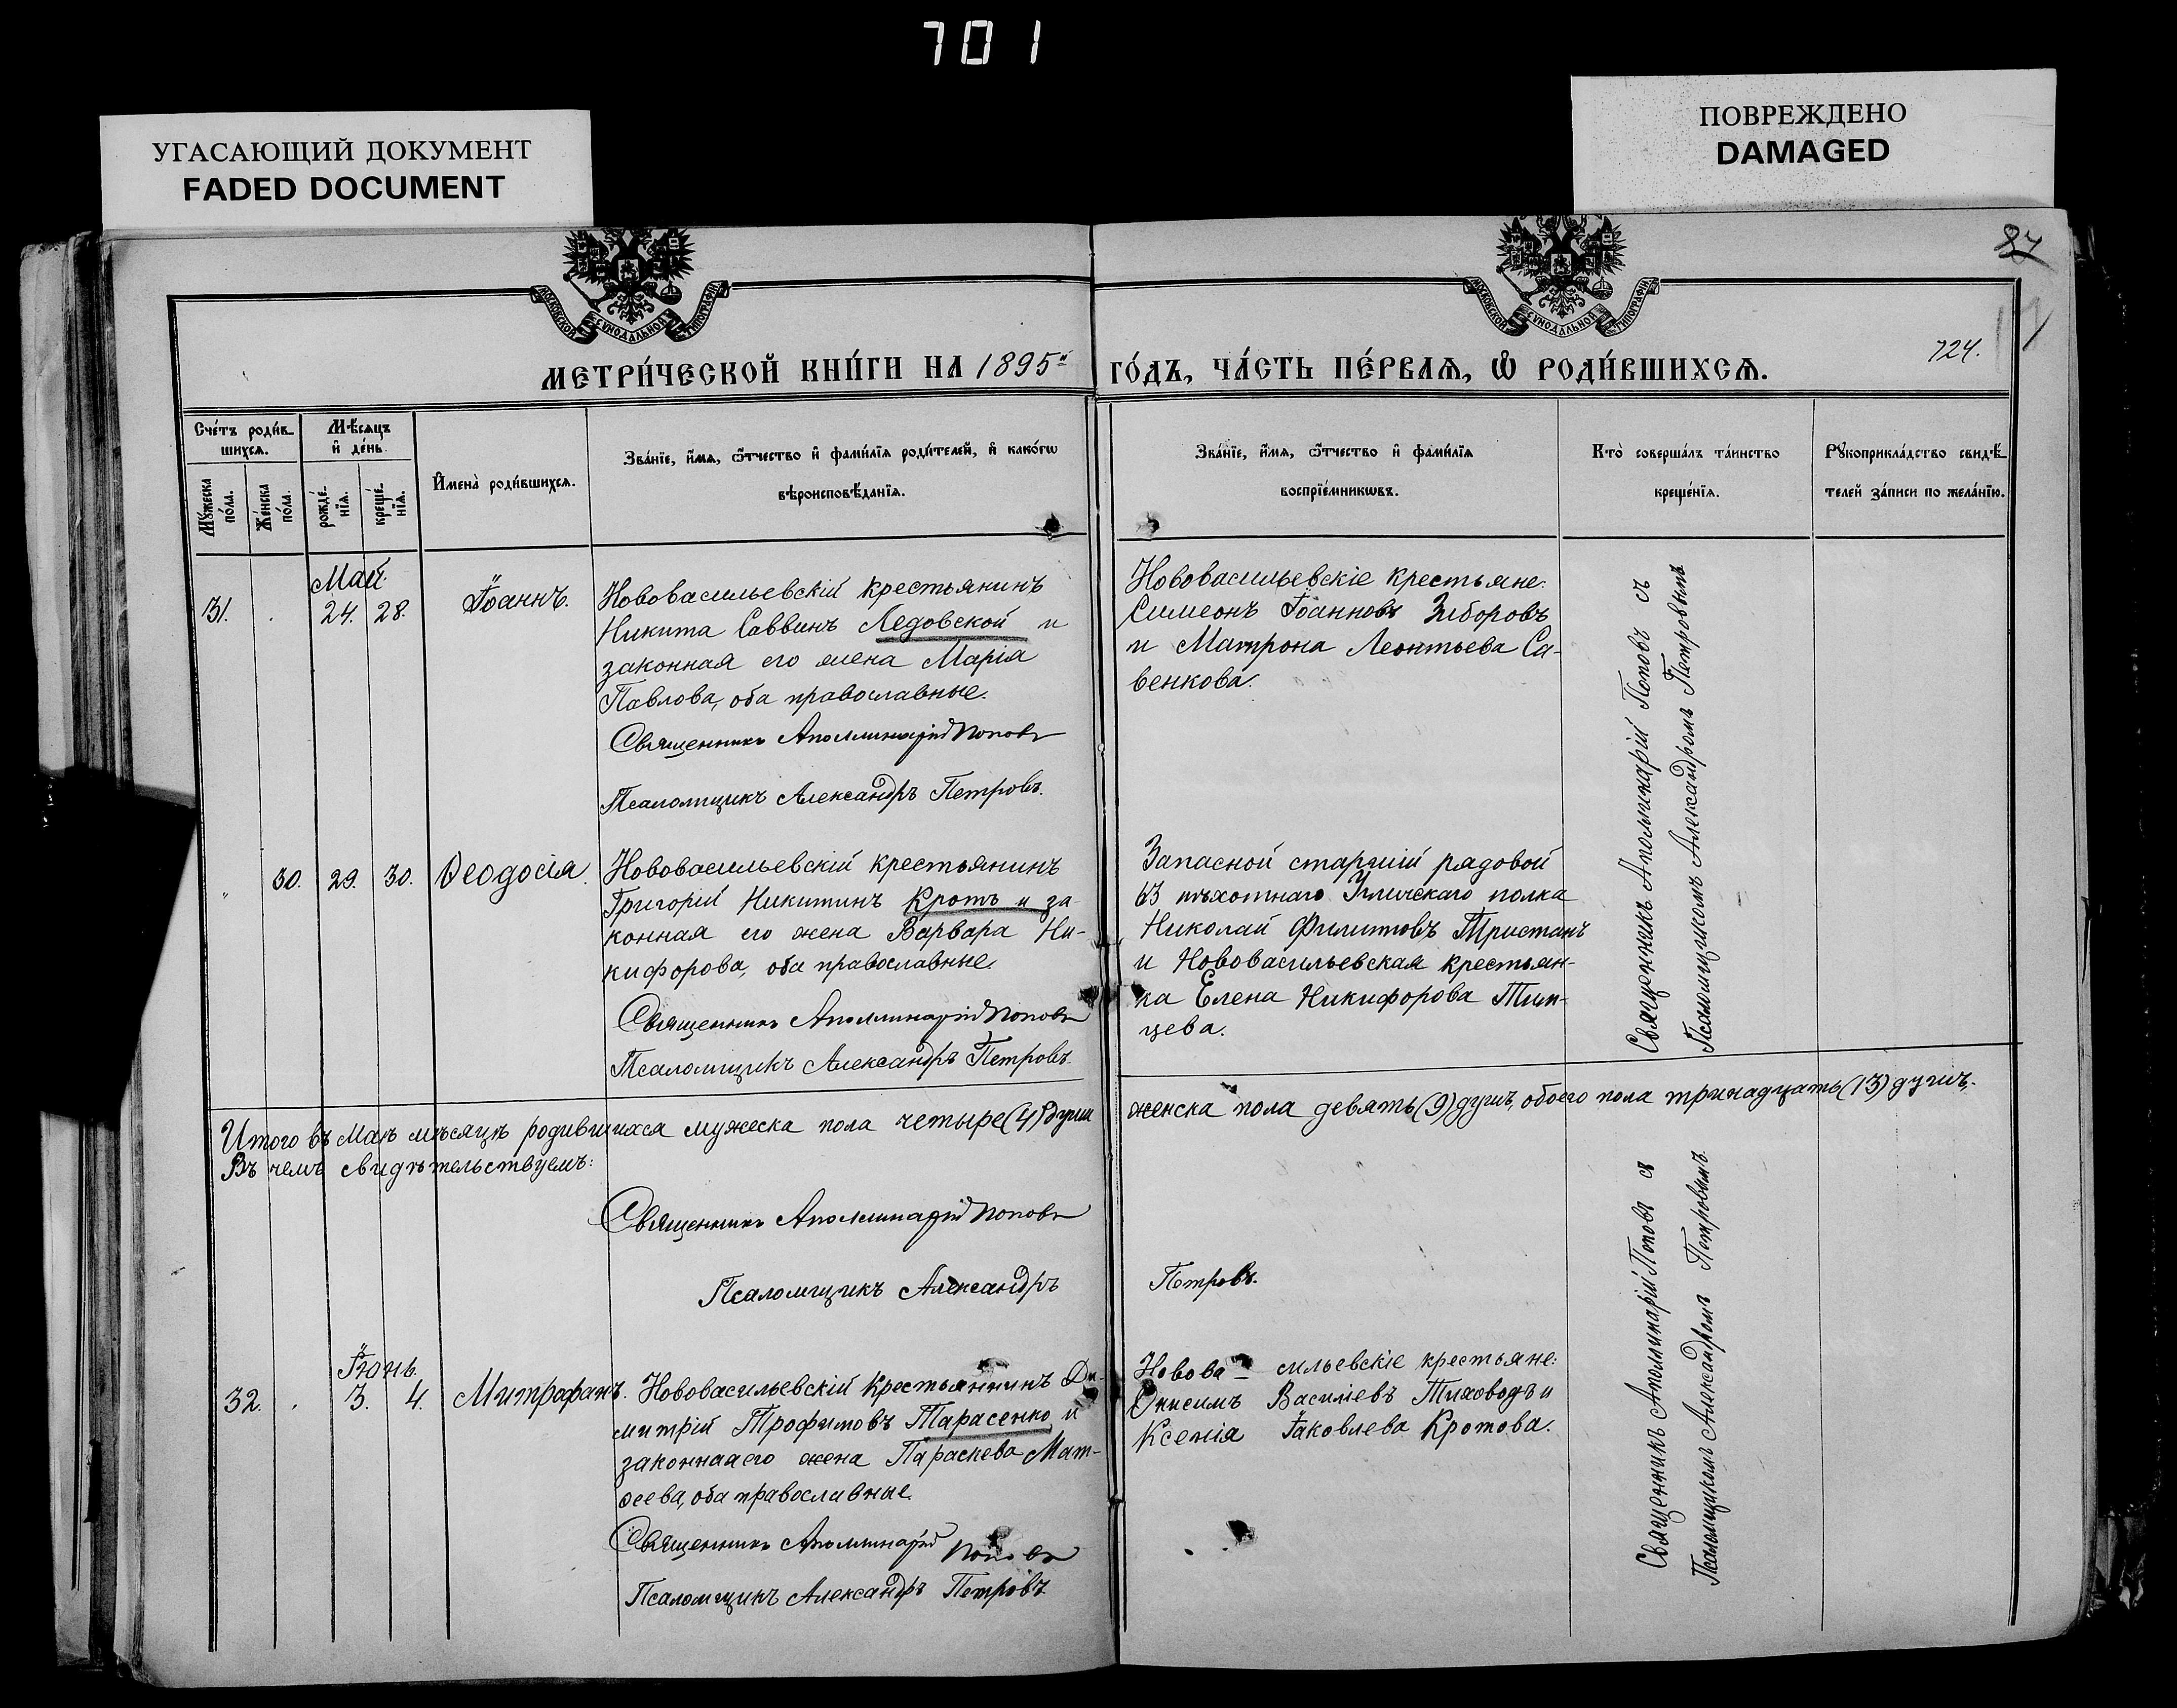 701
УГАСАЮЩИЙ ДОКУМЕНТ
FADED DOCUMENT
ПОВРЕЖДЕНО
DAMAGED
87
724.
МОСКОВСКОЙ СѴНОДАЛЬНОЙ ТИПОГРАФІИ
МОСКОВСКОЙ СѴНОДАЛЬНОЙ ТИПОГРАФІИ
МЕТРИ́ЧЕСКОЙ КНИ́ГИ НА 1895й ГО́ДЪ, ЧА́СТЬ ПЕ́РВАЯ, Ѡ҆ РОДИ́ВШИХСЯ.
Сче́тъ роди́в-
шихся.
Мꙋ́жеска по́ла.
Же́нска по́ла.
Мѣ́сяцъ
и҆ де́нь.
рожде́-
нїя.
креще́-
нїя.
И҆мена̀ роди́вшихся.
Зва́нїе, и҆́мя, ѻ҆́тчество и҆ фами́лїя роди́телей, и҆ како́гѡ
вѣроисповѣ́данїя.
Зва́нїе, и҆́мя, ѻ҆́тчество и҆ фами́лїя
воспрїе́мникѡвъ.
Кто̀ соверша́лъ та́инство
креще́нїя.
Рꙋкоприкла́дство свидѣ́-
телей за́писи по жела́нїю.
Май.
31. 24. 28. Іоаннъ.
Нововасильевскій крестьянинъ
Никита Саввинъ Ледовской и
законная его жена Марія
Павлова, оба православные.
Священникъ Аполлинарій Поповъ
Псаломщикъ Александръ Петровъ.
Нововасильевскіе крестьяне:
Симеонъ Іоанновъ Зиборовъ
и Матрона Леонтьева Са-
венкова.
Священникъ Аполлинарій Поповъ съ
Псаломщикомъ Александромъ Петровымъ
30. 29. 30. Ѳеодосія.
Нововасильевскій крестьянинъ
Григорій Никитинъ Кротъ и за-
конная его жена Варвара Ни-
кифорова, оба православные.
Священникъ Аполлинарій Поповъ
Псаломщикъ Александръ Петровъ.
Запасной старшій рядовой
63 пѣхотнаго Угличскаго полка
Николай Филиповъ Тристанъ
и Нововасильевская крестьян-
ка Елена Никифорова Тим-
цева.
Итого въ Маѣ мѣсяцѣ родившихся мужеска пола четыре (4) души женска пола девять (9) душъ, обоего пола тринадцать (13) душъ.
Въ чемъ свидѣтельствуемъ:
Священникъ Аполлинарій Поповъ
Псаломщикъ Александръ Петровъ.
Іюнь.
32. 3. 4. Митрофанъ.
Нововасильевскій крестьянинъ Ди-
митрій Трофимовъ Тарасенко и
законная его жена Параскева Мат-
ѳеева, оба православные.
Священникъ Аполлинарій Поповъ
Псаломщикъ Александръ Петровъ.
Нововасильевскіе крестьяне:
Онисимъ Василіевъ Тиховодъ и
Ксенія Іаковлева Кротова.
Священникъ Аполлинарій Поповъ съ
Псаломщикомъ Александромъ Петровымъ.